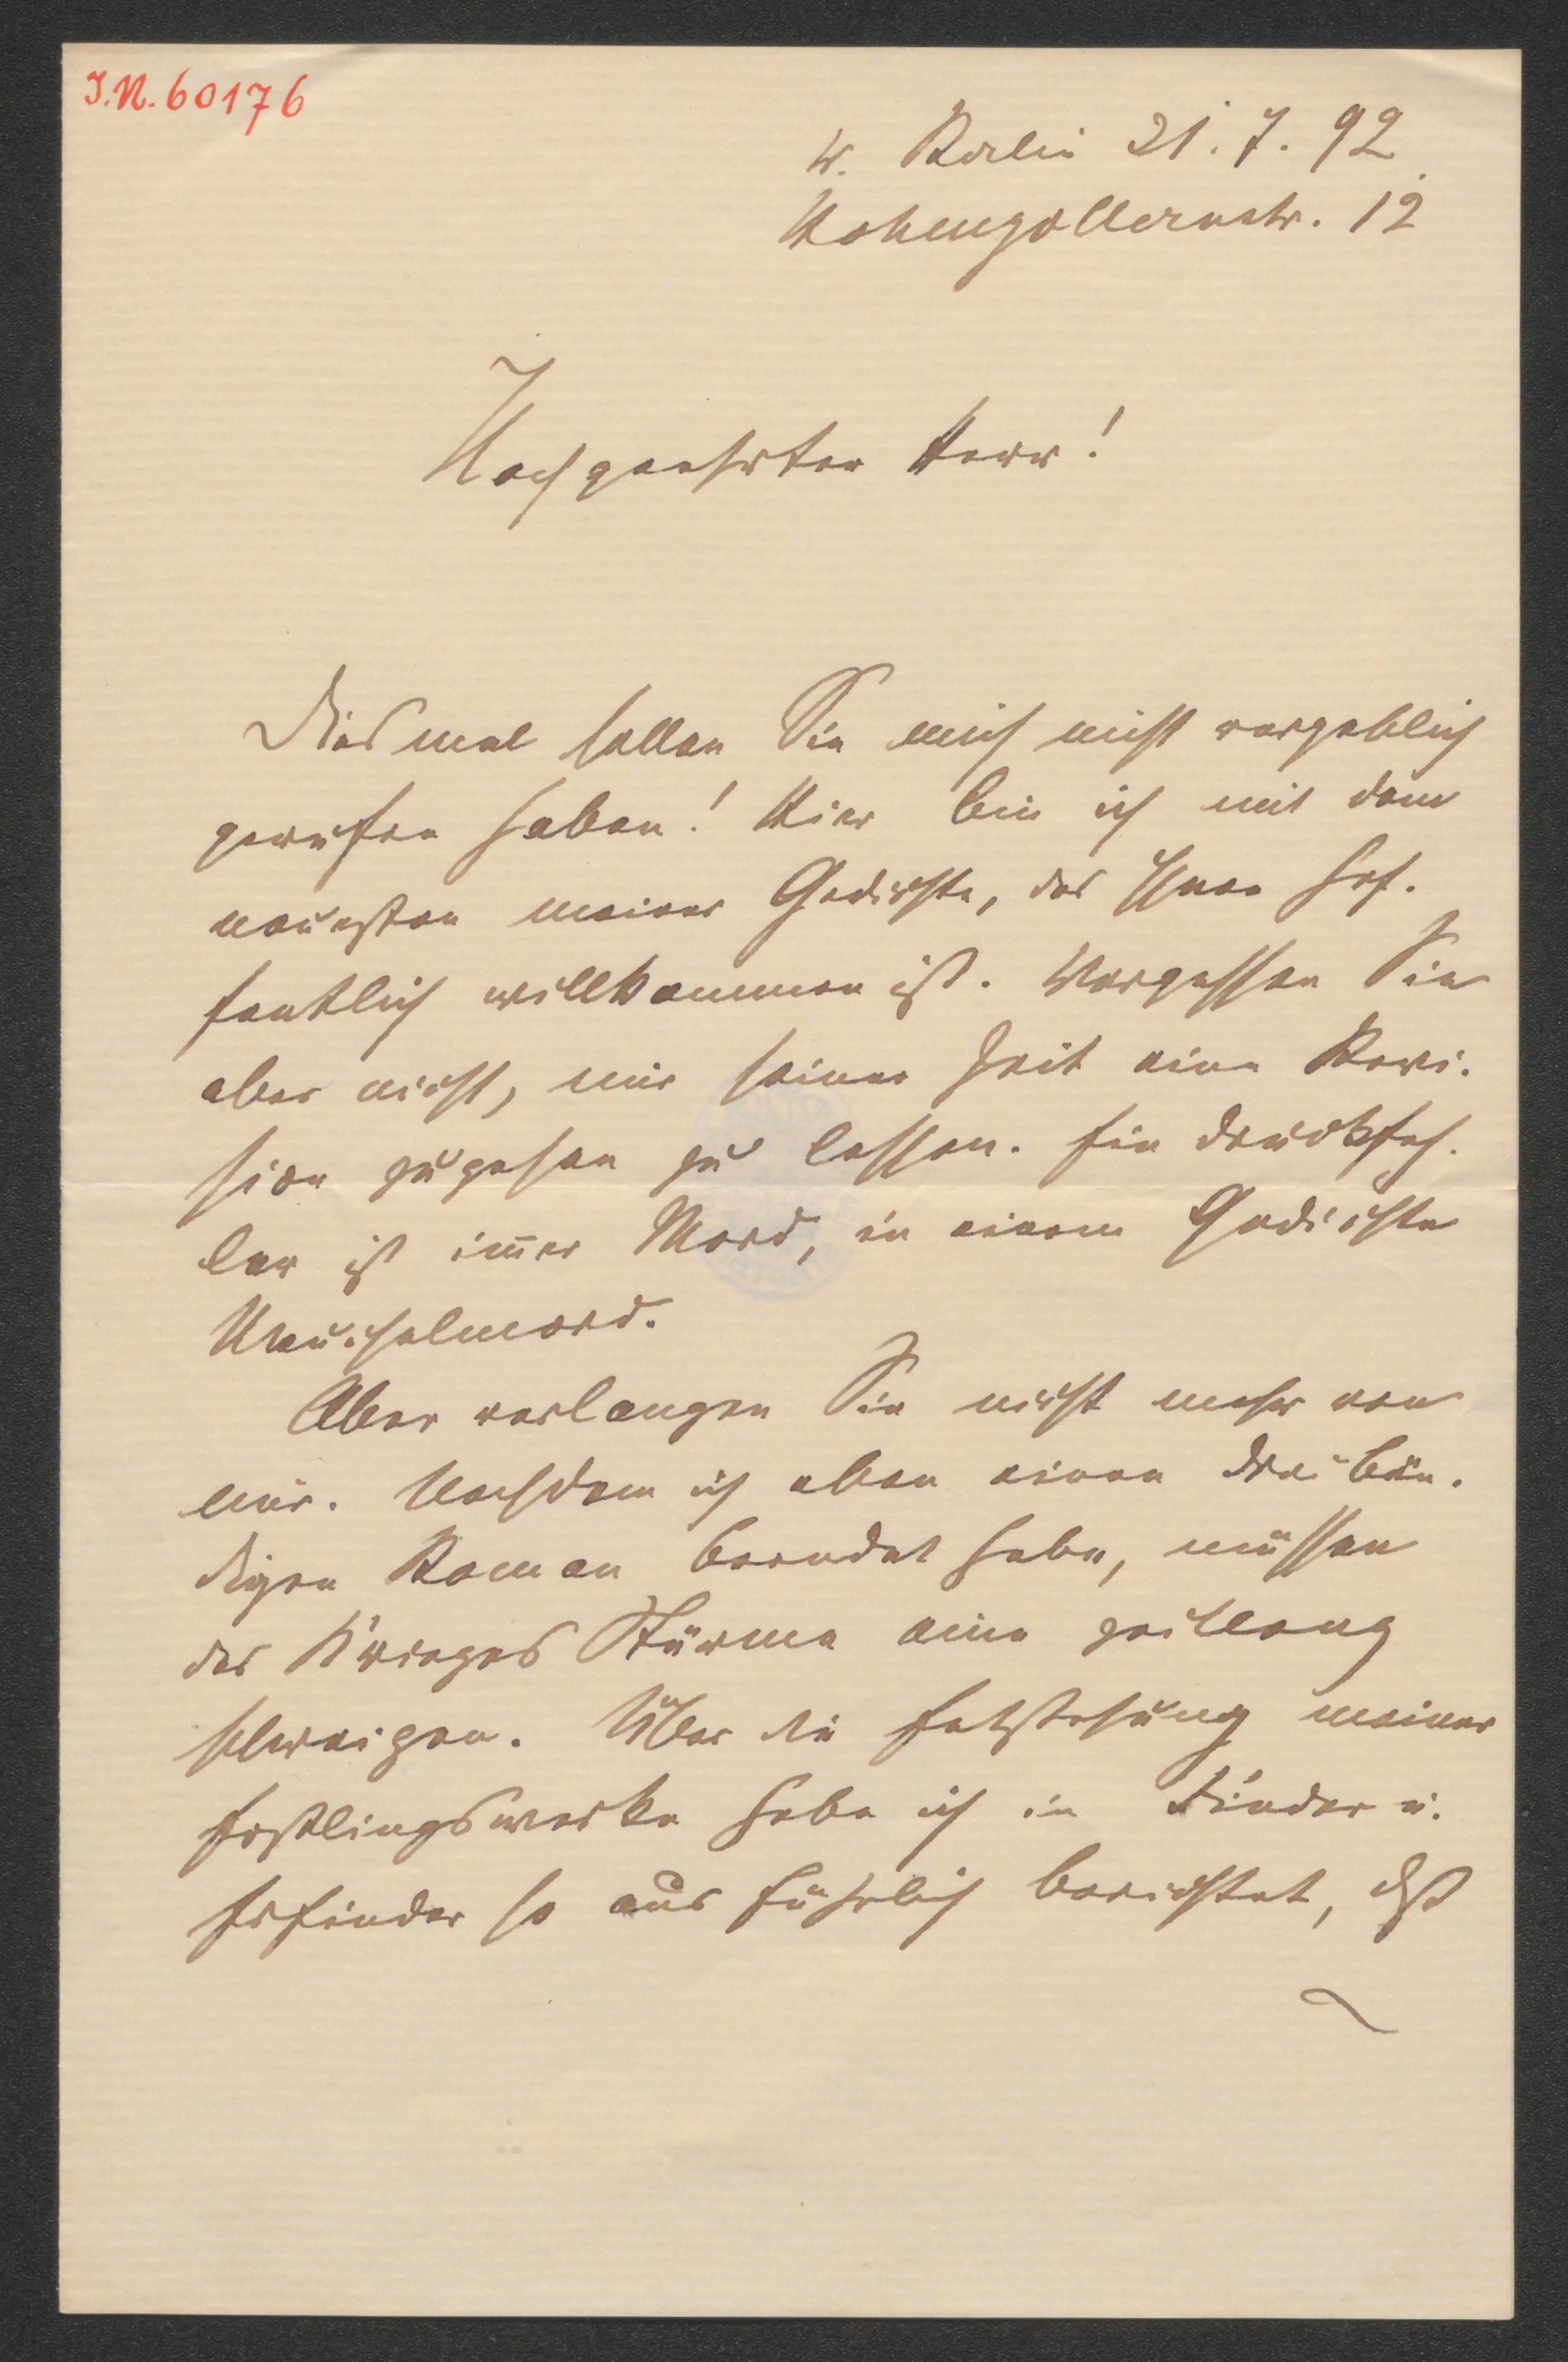 J.N. 60176
W. Berlin 21.7.92.
Hohenzollernstr. 12
Hochgeehrter Herr!
Diesmal sollen Sie mich nicht vergeblich
gerufen haben! Hier bin ich mit dem
neuesten meiner Gedichte, das Ihnen hof-
fentlich willkommen ist. Vergessen Sie
aber nicht, mir seiner Zeit eine Revi-
sion zugehen zu lassen. Ein Druckfeh-
ler ist im̅er Mord, in einem Gedichte
Meuchelmord.
Aber verlangen Sie nicht mehr von
mir. Nachdem ich eben einen dreibän-
digen Roman beendet habe, müssen
des Krieges Stürme eine zeitlang
schweigen. Über die Entstehung meiner
Erstlingswerke habe ich in Finder u.
Erfinder so ausführlich berichtet, dß